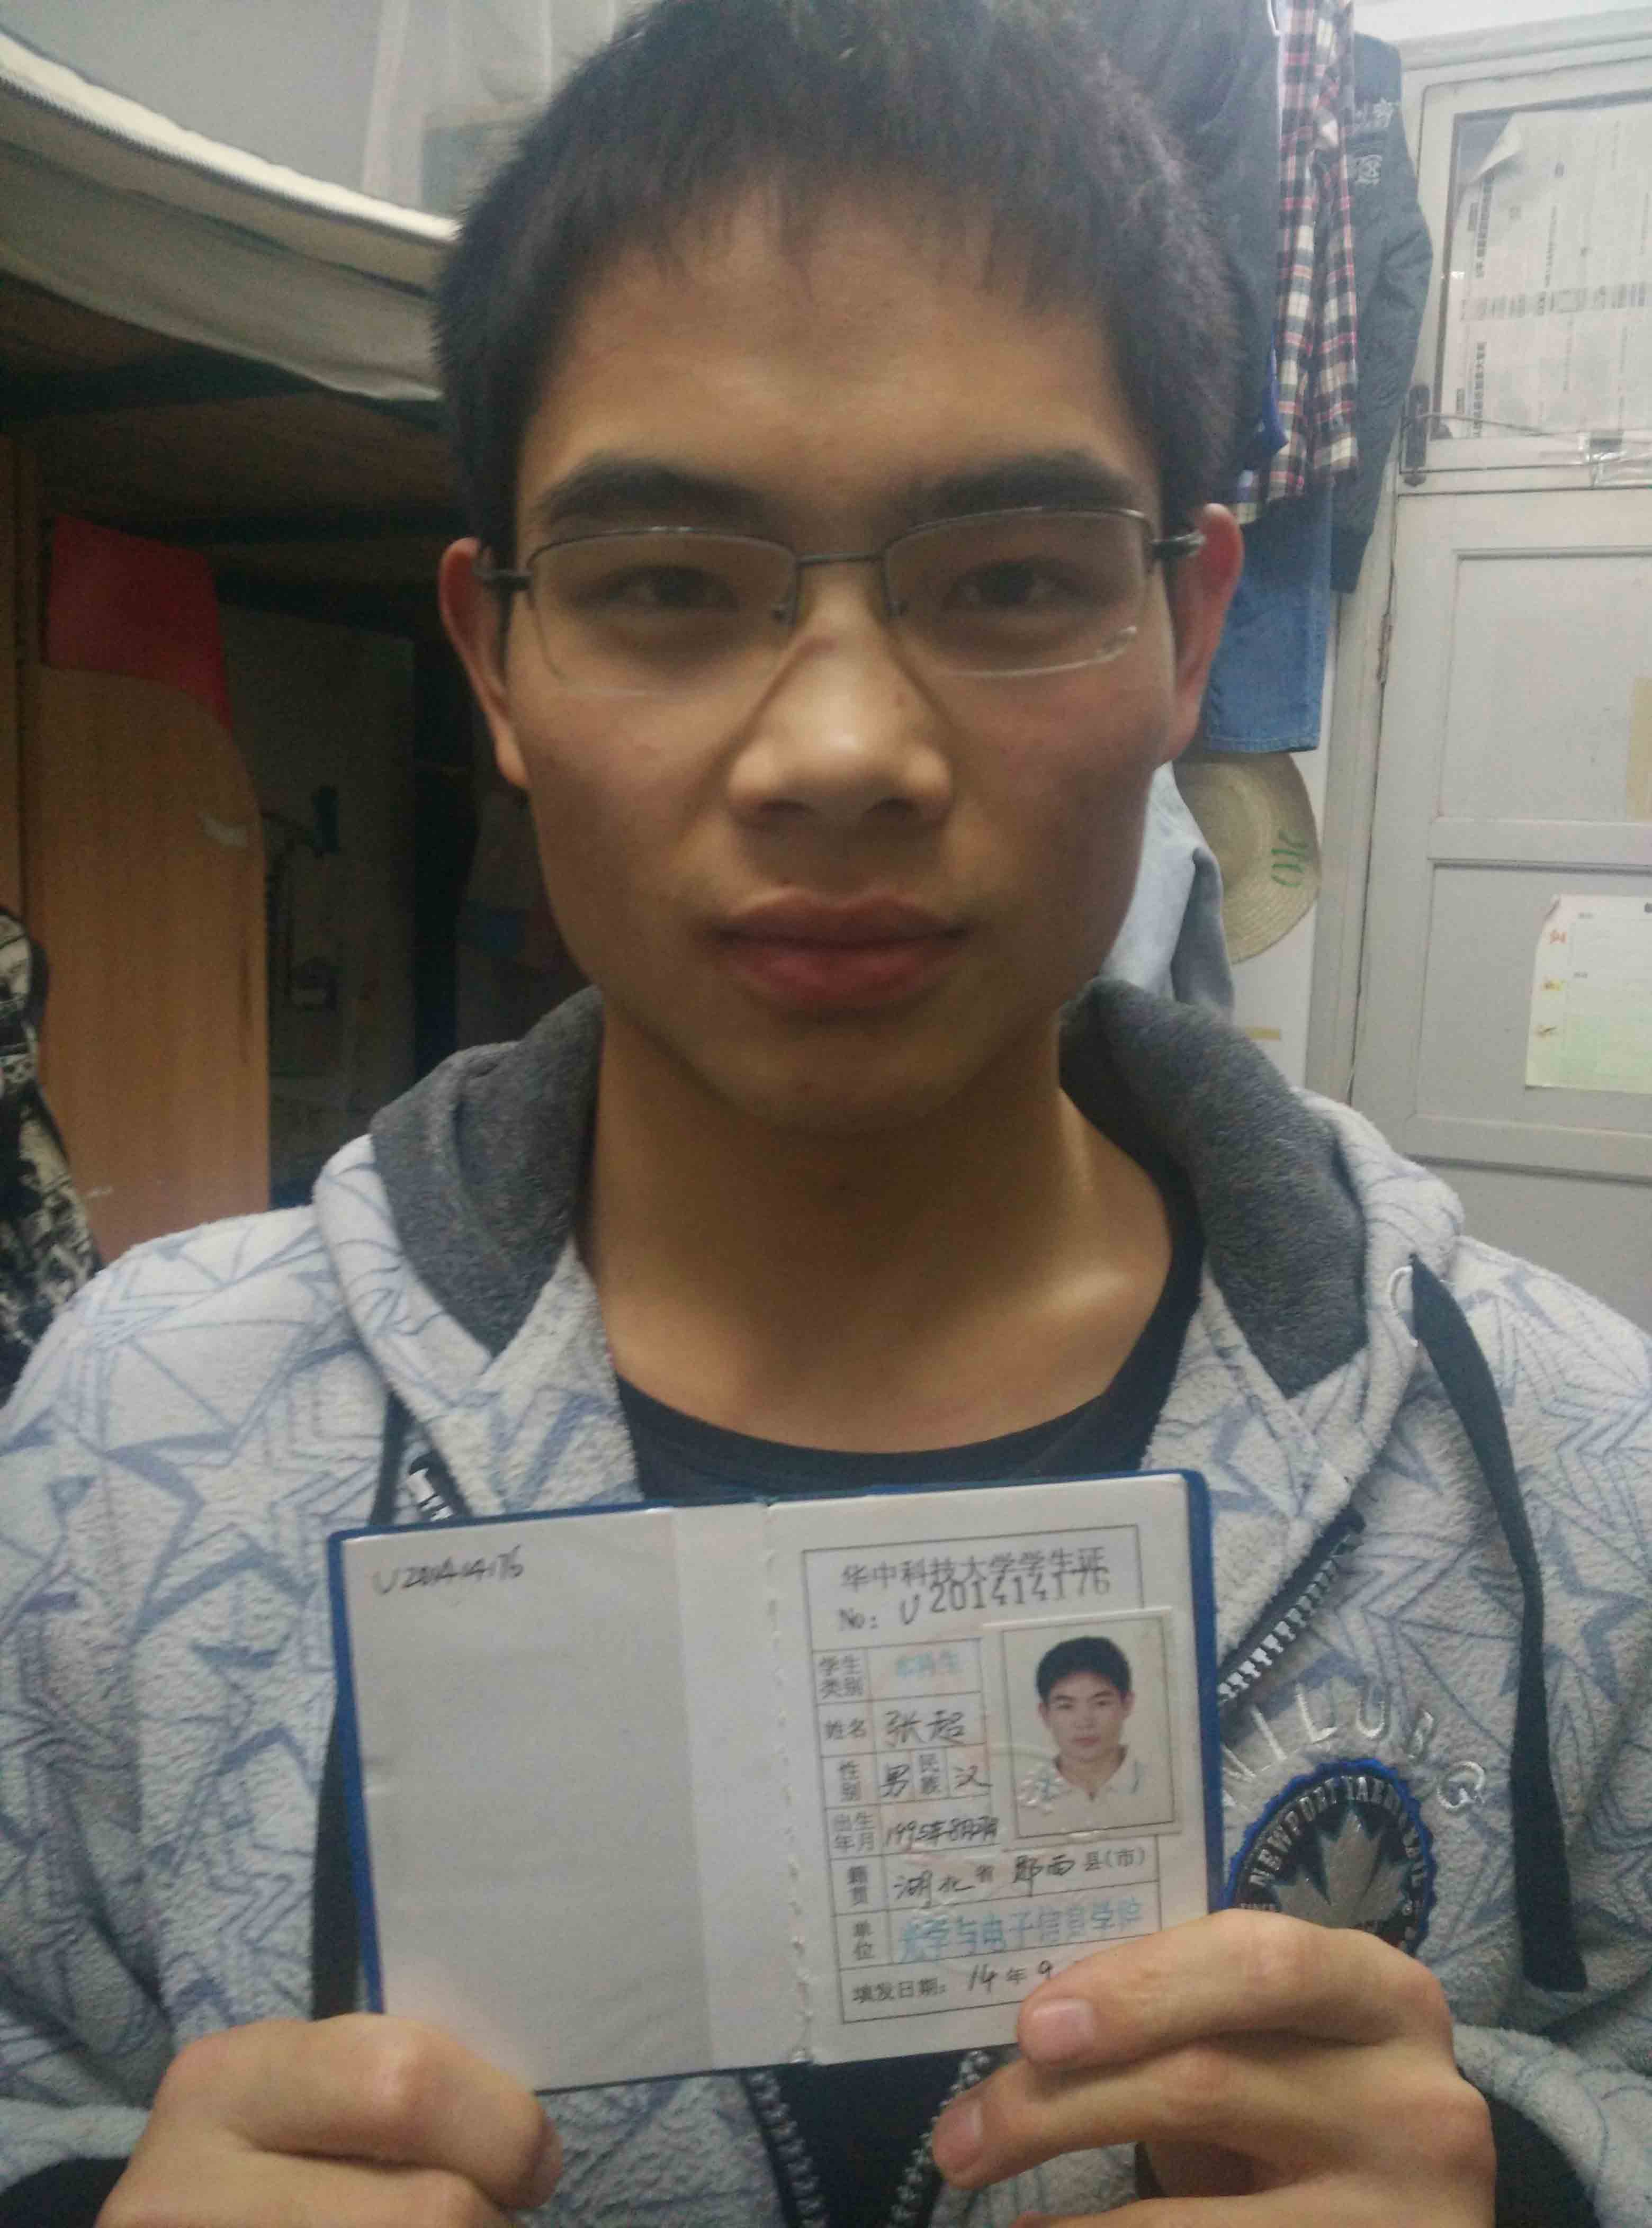 U201414176
华中科技大学学生证
No: U201414176
学生类别 本科生
姓名 张超
性别 男 民族 汉
出生年月 1995年8月
籍贯 湖北省 郧西县(市)
单位 光学与电子信息学院
填发日期: 14年9